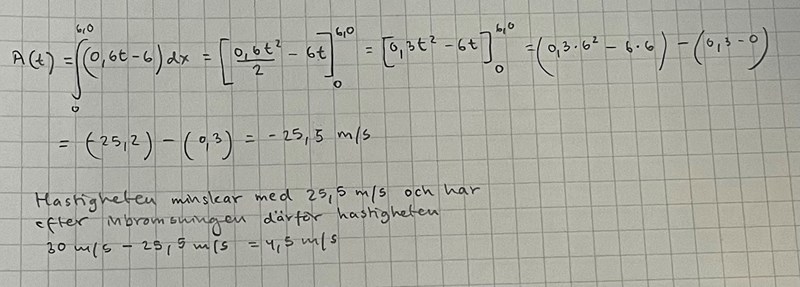 A(t) = ∫₀^6,0 (0,6t - 6) dx = [0,6t²/2 - 6t]₀^6,0 = [0,3t² - 6t]₀^6,0 = (0,3·6² - 6·6) - (0,3 - 0)
= (-25,2) - (0,3) = -25,5 m/s
Hastigheten minskar med 25,5 m/s och har
efter inbromsningen därför hastigheten
30 m/s - 25,5 m/s = 4,5 m/s